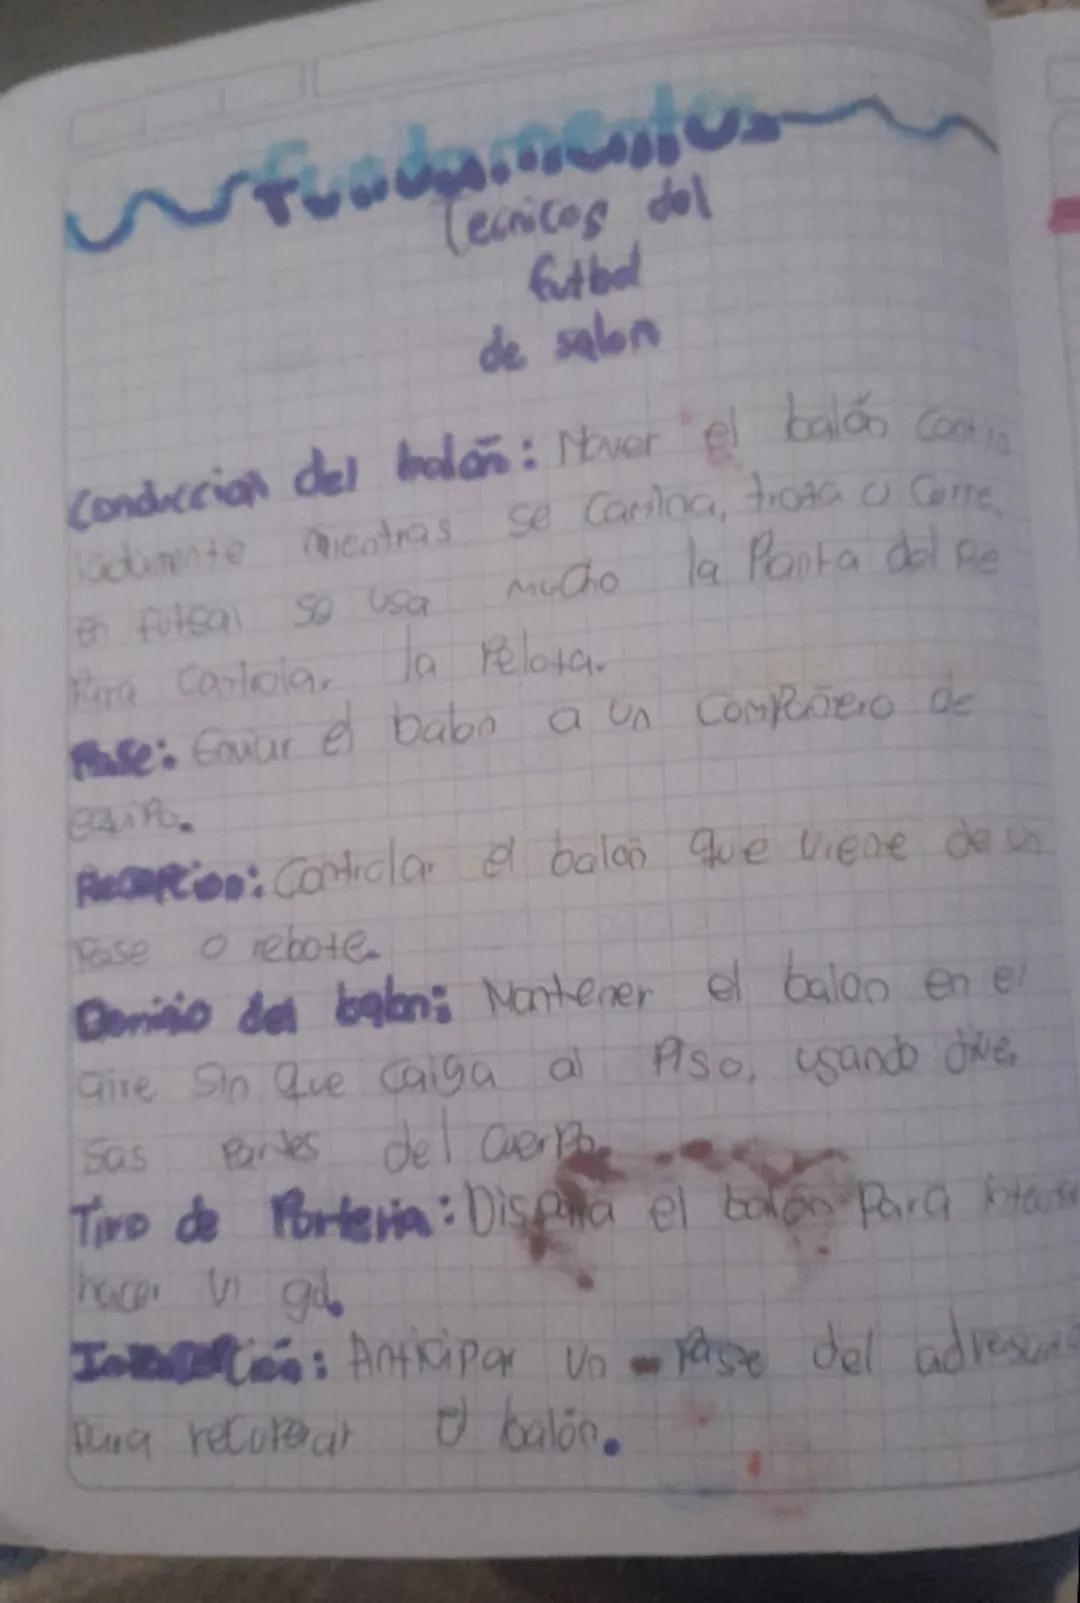 Fundamentos
Tecnicos del
futbol
de salon
Conduccion del balón: Mover el balón contro
ladamente mientras se camina, trota o corre,
en futsal se usa mucho la Planta del Pie
Para controlar la Pelota.
Pase: Enviar el balon a un compañero de
equipo.
Recepcion: Controlar el balón que viene de un
Pase o rebote.
Dominio del balon: Mantener el balon en el
aire sin que caiga al Piso, usando diver
sas Partes del cuerpo.
Tiro de Porteria: Dispara el balón Para
hacer un gol.
Anticipar un Pase del
para recuperar el balón.